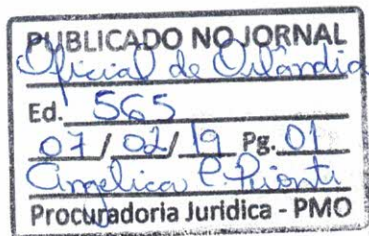 PUBLICADO NO JORNAL
Oficial de Orlândia
Ed. 565
07 / 02 / 19 Pg. 01
Angelica P.
Procuradoria Juridica - PMO